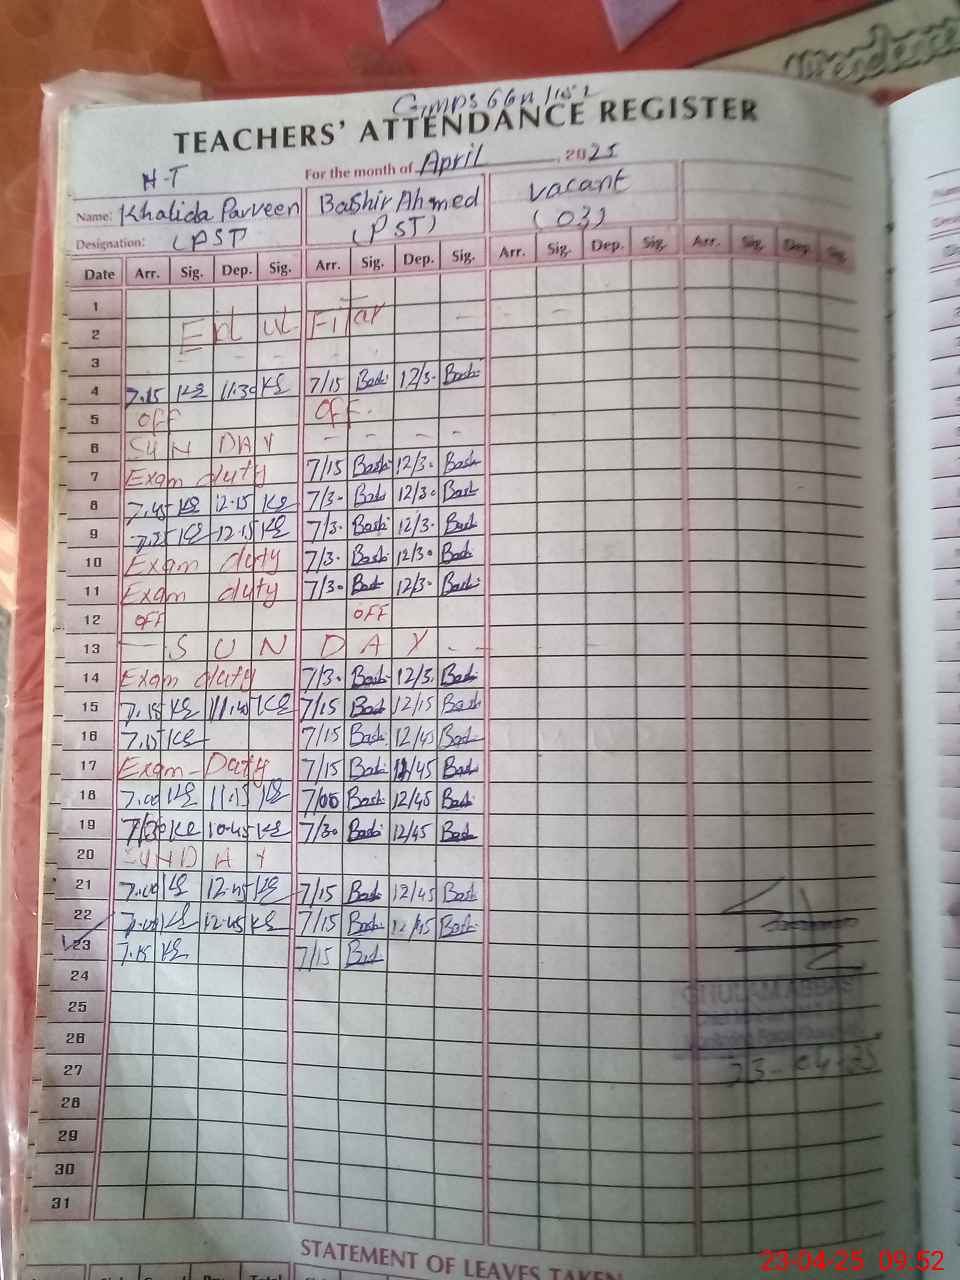 GMPS 66
TEACHERS' ATTENDANCE REGISTER
For the month of April, 2025
H-T
Name: Khalida Parveen Bashir Ahmed vacant
Designation: (PST (PST) (03)
Date Arr. Sig. Dep. Sig. Arr. Sig. Dep. Sig. Arr. Sig. Dep. Sig. Arr. Sig. Dep. Sig.
1
2 Eid ul Fitar
3
4 7.15 11.30 7/15 Bash 12/3. Bash
5 OFF OFF.
6 SUN DAY
7 Exam duty 7/15 Bash 12/3. Bash
8 7.45 12.15 7/3. Bash 12/3. Bash
9 12.15 7/3. Bash 12/3. Bash
10 Exam duty 7/3. Bash 12/3. Bash
11 Exam duty 7/3. Bash 12/3. Bash
12 OFF OFF
13 SUN DAY
14 Exam duty 7/3. Bash 12/3. Bash
15 7.15 11.40 7/15 Bash 12/15 Bash
16 7.15 7/15 Bash 12/45 Bash
17 Exam-Duty 7/15 Bash 12/45 Bash
18 7.00 11.15 7/00 Bash 12/45 Bash
19 7/30 10.45 7/30 Bash 12/45 Bash
20 SUNDAY
21 7.00 12.45 7/15 Bash 12/45 Bash
22 7.00 12.45 7/15 Bash 12/45 Bash
23 7.15 7/15 Bash
24
25
26
27
28
29
30
31
GHULAM ABBAS
23-04-25
STATEMENT OF LEAVES TAKEN
Total
23-04-25 09:52